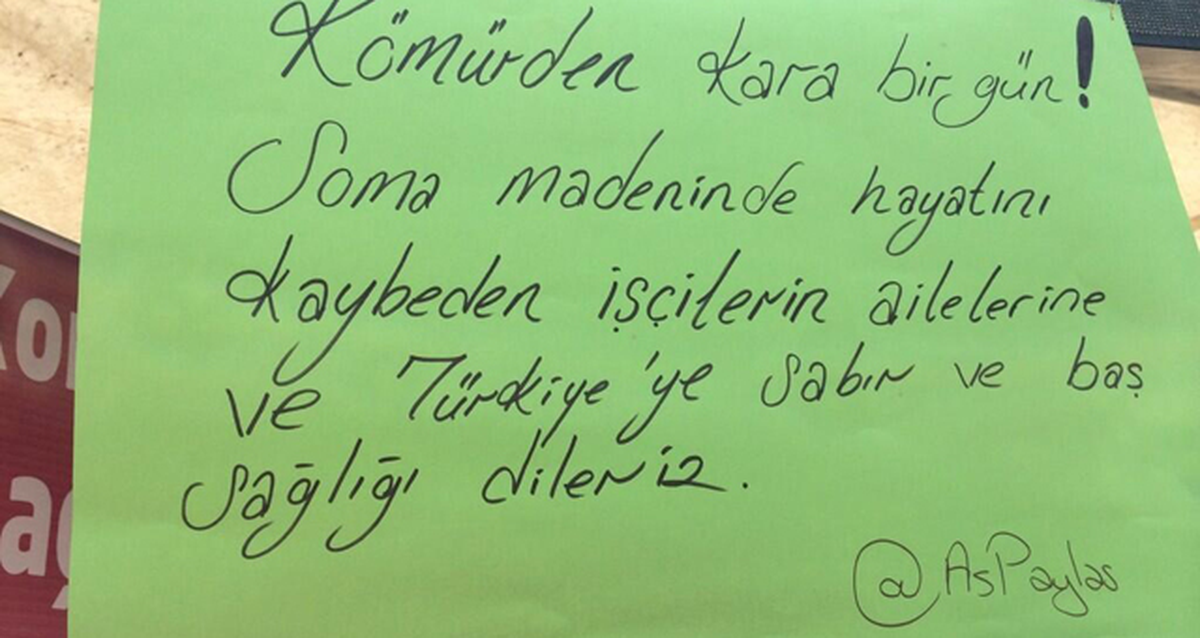 Kömürden kara bir gün!
Soma madeninde hayatını
kaybeden işçilerin ailelerine
ve Türkiye'ye sabır ve baş
sağlığı dileriz.
@AsPaylas